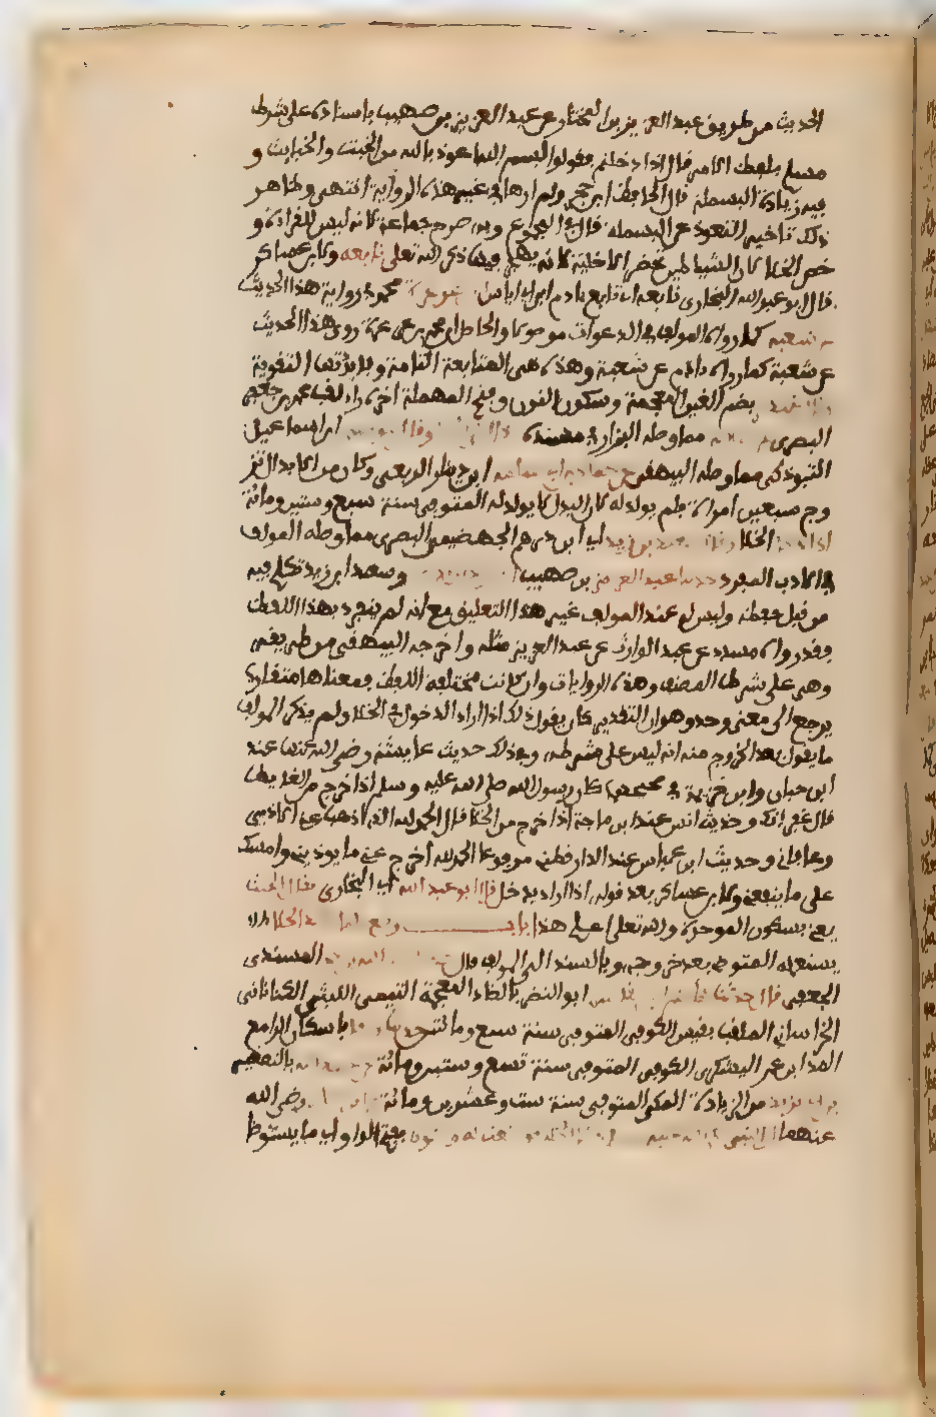 الحديث من طريق عبد العزيز بن المختار عن عبد العزيز بن صهيب باسناده على شرط
مسلم بلفظ الامر قال اذا دخلتم فقولوا بسم الله اعوذ بالله من الخبث والخبايث و
فيه زيادة البسملة قال الحافظ ابن حجر ولم ارها في غير هذه الرواية انتهى وظاهر
ذلك تاخير التعوذ عن البسملة قال في المجموع وبه صرح جماعة لانه ليس للقراءة و
خص الخلا لان الشياطين تحضر الاخلية لانه يهجر فيها ذكر الله تعلى تابعه ولابن عساكر
قال ابو عبد الله البخاري تابعه اي تابع ءادم ابن ابي اياس ابن عرعرة محمد في رواية هذا الحديث
عن شعبة كما رواه المولف في الدعوات موصولا والحاصل ان محمد بن عرعرة روى هذا الحديث
عن شعبة كما رواه ءادم عن شعبة وهذه هي المتابعة التامة وفايدتها التقوية
وقال غندر بضم الغين المعجمة وسكون النون وفتح المهملة اخره راء لقب محمد بن جعفر
البصري عن شعبة مما وصله البزار في مسنده اذا اتى وقال موسى ابن اسماعيل
التبوذكي مما وصله البيهقي عن حماد اي ابن سلمة ابن دينار الربعي وكان من الابدال تز
وج سبعين امراة فلم يولد له لان البدل لا يولد له المتوفى سنة سبع وستين ومائة
اذا دخل الخلا وقال سعيد بن زيد اي ابن درهم الجهضمي البصري مما وصله المولف
في الادب المفرد حدثنا عبد العزيز بن صهيب اذا اراد ان يدخل وسعيد ابن زيد تكلم فيه
من قبل حفظه وليس له عند المولف غير هذا التعليق مع انه لم ينفرد بهذا اللفظ
فقد رواه مسدد عن عبد الوارث عن عبد العزيز مثله واخرجه البيهقي من طريقه
وهو على شرط المصنف وهذه الروايات وان كانت مختلفة اللفظ فمعناها متقارب
يرجع الى معنى وحد وهو ان التقدير كان يقول ذلك اذا اراد الدخول في الخلا ولم يذكر المولف
ما يقول بعد الخروج منه لانه ليس على شرطه وفي ذلك حديث عايشة رضي الله عنها عند
ابن حبان وابن خزيمة في صحيحيهما كان رسول الله صلى الله عليه وسلم اذا خرج من الغايط
قال غفرانك وحديث انس عند ابن ماجة اذا خرج من الخلا قال الحمد لله الذي اذهب عني الاذى
وعافاني وحديث ابن عباس عند الدارقطني مرفوعا الحمد لله الذي اخرج عني ما يوذيني وامسك
على ما ينفعني ولابن عساكر بعد قوله اذا اراد يدخل قال ابو عبد الله اي البخاري يقال الخبث
يعني بسكون الموحدة والله تعلى اعلم هذا باب وضع الماء عند الخلا
يستعمله المتوضي بعد خروجه وبالسند الى المولف قال حدثنا عبد الله بن محمد المسندي
الجعفي قال حدثنا هاشم بن القاسم ابو النضر بالضاد المعجمة التميمي الليثي الكناني
الخراساني الملقب بقيصر الكوفي المتوفى سنة سبع ومائتين حدثنا ورقا باسكان الراء مع
المد ابن عمر اليشكري الكوفي المتوفى سنة تسع وستين ومائة عن عبيد الله بالتصغير
بن ابي يزيد من الزيادة المكي المتوفى سنة ست وعشرين ومائة عن ابن عباس رضي الله
عنهما ان النبي صلى الله عليه وسلم دخل الخلا فوضعت له وضوءا بفتح الواو اي ما يتوضا